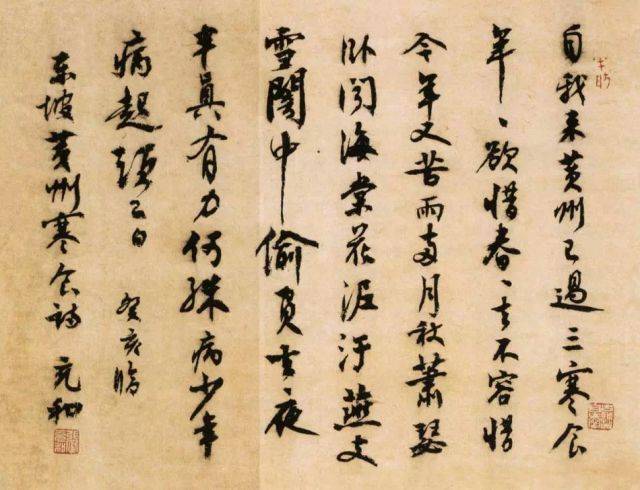 自我来黄州已過三寒食
年〻欲惜春〻去不容惜
今年又苦雨兩月秋蕭瑟
卧聞海棠花泥汙燕支
雪闇中偷負去夜
半真有力何殊病少年
病起頭已白 癸亥臨
東坡黄州寒食詩 充和